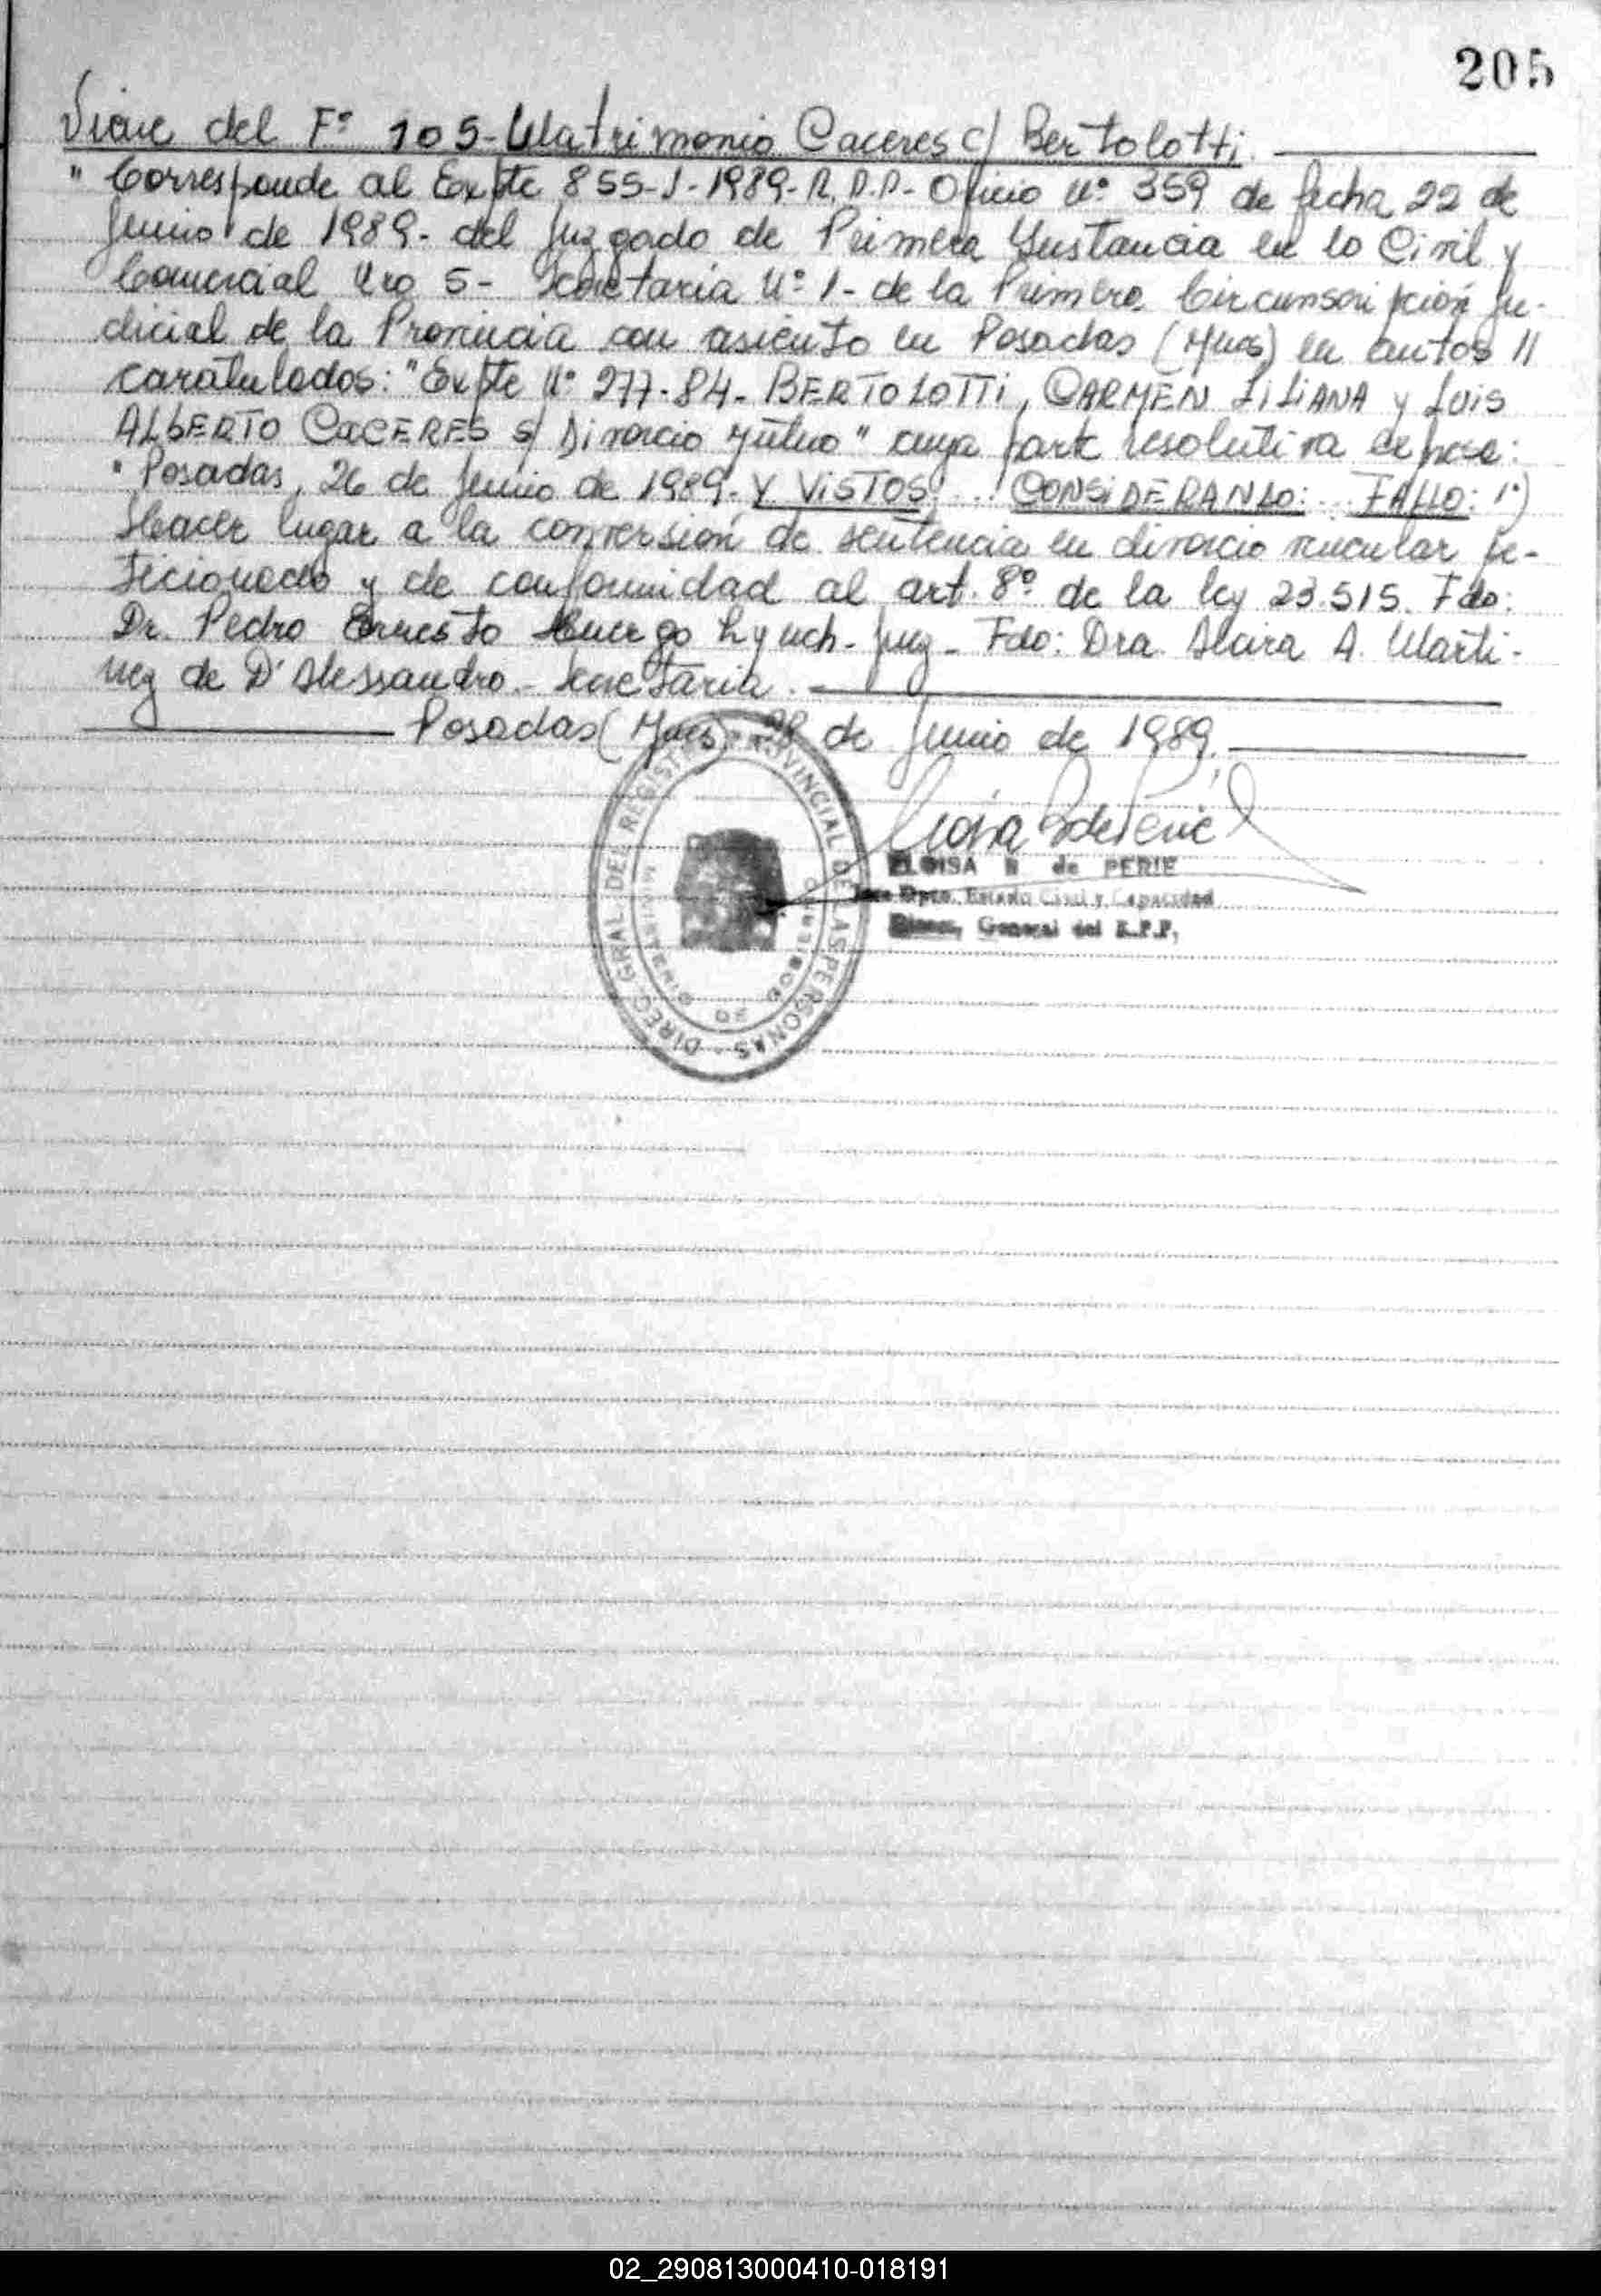 205
Viene del Fº 105 - Matrimonio Caceres c/ Bertolotti.
" Corresponde al Expte 855-J-1989- R.P.P.- Oficio Nº 359 de fecha 22 de
Junio de 1989- del Juzgado de Primera Instancia en lo Civil y
Comercial Nro 5- Secretaria Nº 1- de la Primera Circunscripción Ju-
dicial de la Provincia con asiento en Posadas (Mnes) en autos //
caratulados: "Expte Nº 277-84- BERTOLOTTI, CARMEN LILIANA y LUIS
ALBERTO CACERES s/ Divorcio Mútuo" cuya parte resolutiva expresa:
" Posadas, 26 de Junio de 1989- Y VISTOS: ... CONSIDERANDO: ... FALLO: 1º)
Hacer lugar a la conversión de sentencia en divorcio vincular pe-
ticionado y de conformidad al art. 8º de la ley 23.515. Fdo:
Dr. Pedro Ernesto Huergo Lynch- Juez- Fdo: Dra. Alcira A. Marti-
nez de D'Alessandro- Secretaria.
Posadas (Mnes) 28 de Junio de 1989.
DIREC. GRAL. DEL REGISTRO PROVINCIAL DE LAS PERSONAS
MINISTERIO DE GOBIERNO
ELOISA R de PERIE
Dpto. Estado Civil y Capacidad
General del R.P.P.
02_290813000410-018191